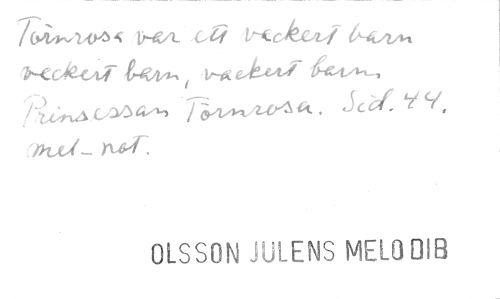 Törnrosa var ett vackert barn
vackert barn, vackert barn.
Prinsessan Törnrosa. Sid. 44.
mel-not.
OLSSON JULENS MELODIB